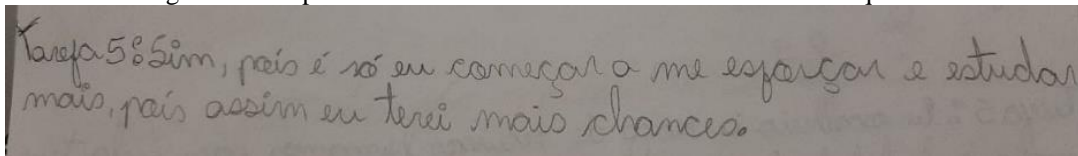 Tarefa 5: Sim, pois é só eu começar a me esforçar e estudar
mais, pois assim eu terei mais chances.